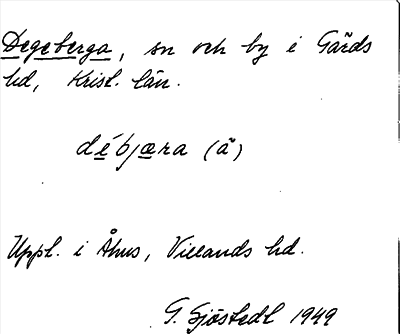 Degeberga, sn och by i Gärds
hd, Krist. län.
débjæra (ä)
Uppl. i Åhus, Villands hd.
G. Sjöstedt 1949